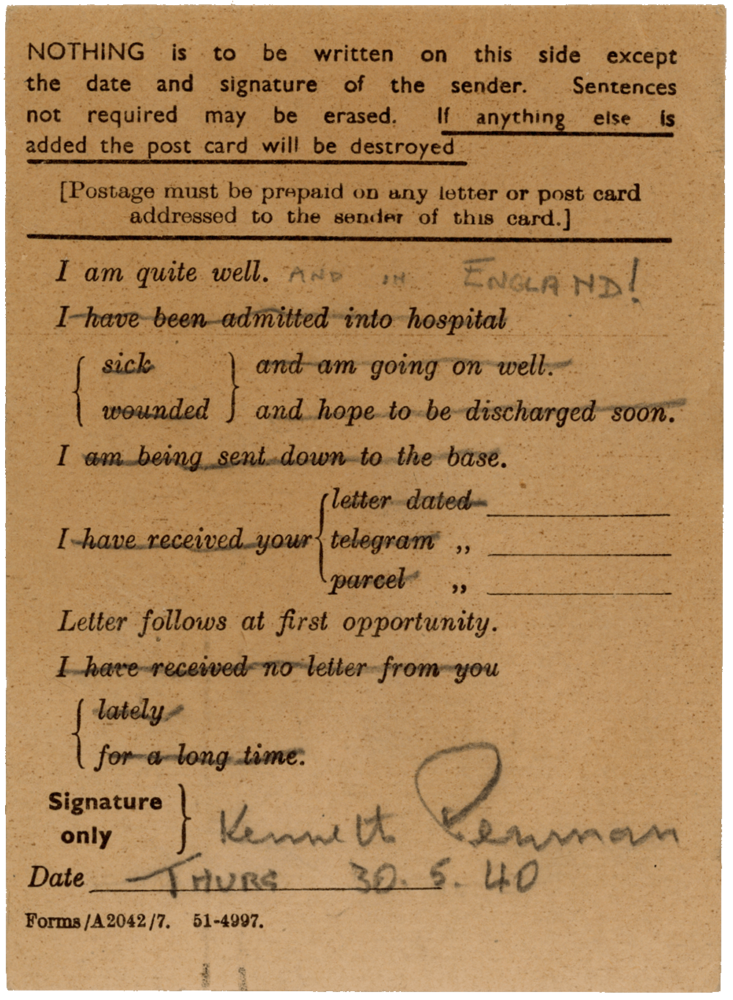 NOTHING is to be written on this side except
the date and signature of the sender. Sentences
not required may be erased. If anything else is
added the post card will be destroyed
[Postage must be prepaid on any letter or post card
addressed to the sender of this card.]
I am quite well. AND IN ENGLAND!
I have been admitted into hospital
sick and am going on well.
wounded and hope to be discharged soon.
I am being sent down to the base.
letter dated
I have received your telegram „
parcel „
Letter follows at first opportunity.
I have received no letter from you
lately
for a long time.
Signature
only Kenneth Penman
Date THURS 30.5.40
Forms/A2042/7. 51-4997.